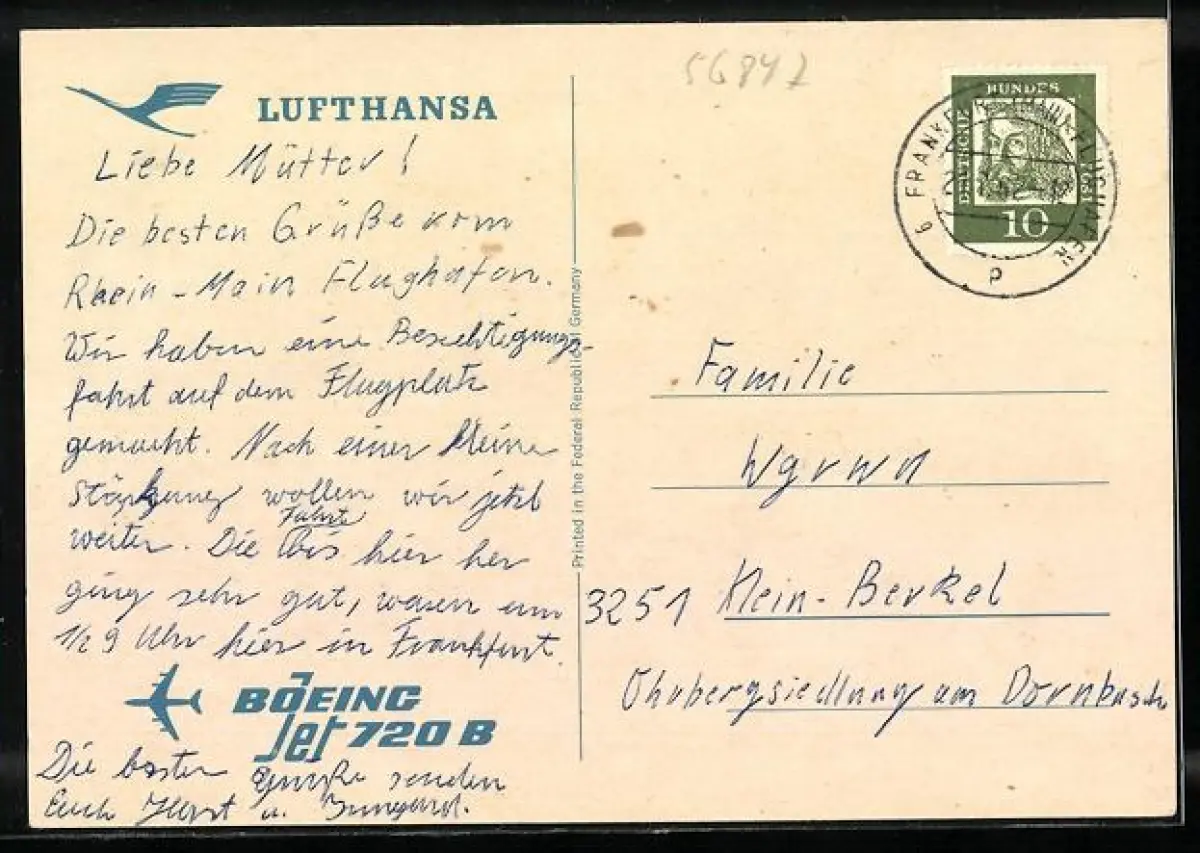 56847
LUFTHANSA
Liebe Mütter!
Die besten Grüße vom
Rhein-Main Flughafen.
Wir haben eine Besichtigungs-
fahrt auf dem Flugplatz
gemacht. Nach einer kleine
Stärkung wollen wir jetzt
weiter. Die Fahrt bis hier her
ging sehr gut, waren um
1/2 9 Uhr hier in Frankfurt.
BOEING
Jet 720 B
Die besten Grüße senden
Euch Horst u. Irmgard.
Printed in the Federal Republic of Germany
DEUTSCHE BUNDES
10
6 FRANKFURT MAIN-FLUGHAFEN
p
Familie
3251 Klein-Berkel
Ohrbergsiedlung am Dornbusch